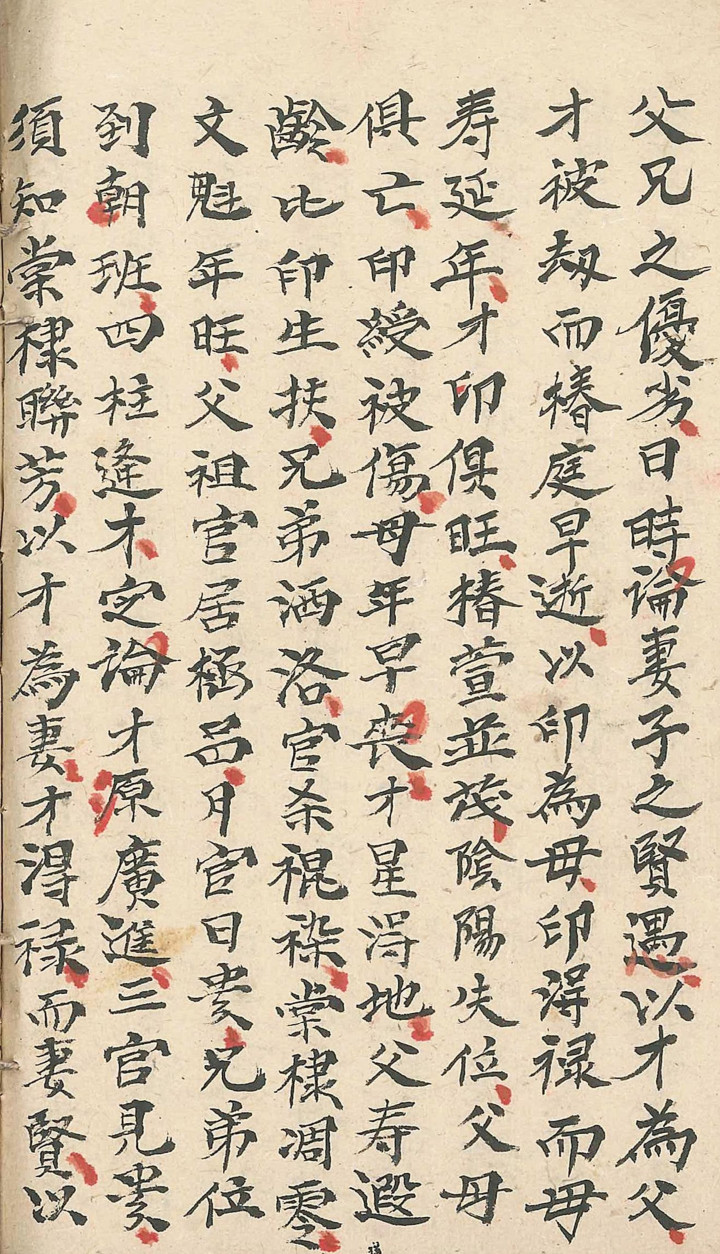 父兄之優劣日時論妻子之賢遇以才為父
才被刼而椿庭早逝以印為毋印得禄而毋
寿延年才印俱旺椿萱並茂陰陽失位父毋
俱亡印綬被傷毋年早喪才星得地父寿遐
齡比印生扶兄弟洒洛官杀裩染棠棣凋零
文魁年旺父祖官居極品月官日貴兄弟位
到朝班四柱逢才定論才原廣進三官見貴
須知棠棣聯芳以才為妻才得禄而妻賢以